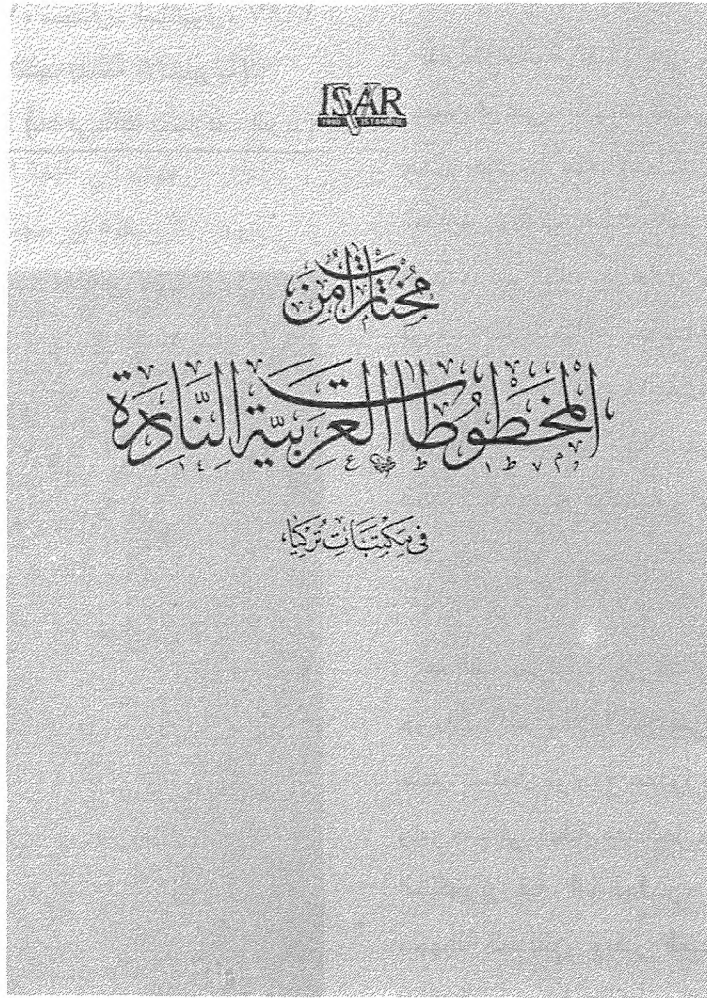 ISAR
مُختارات مِن
المخطُوطات العَربيَّة النَّادِرَة
في مَكتَبَات تُركيا